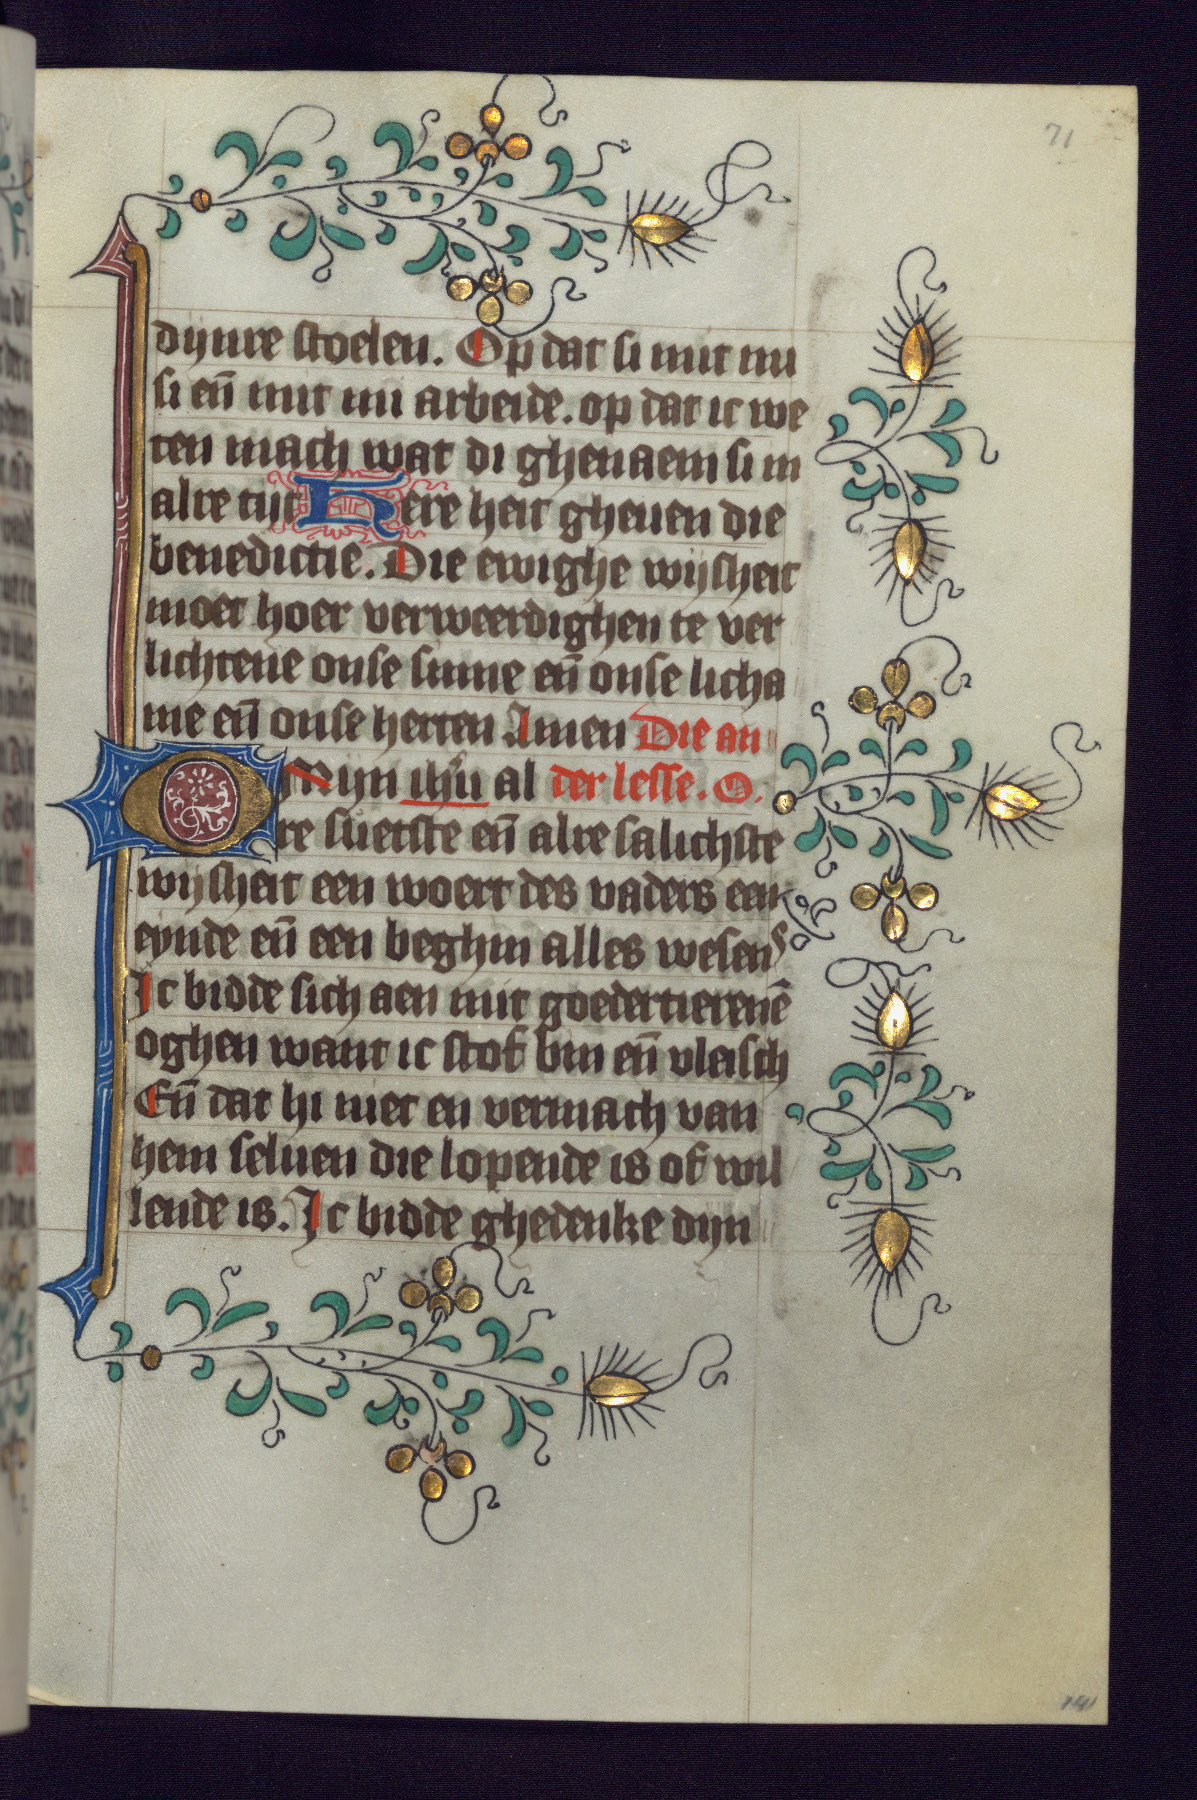 71
dijnre stoelen. Op dat si mit mi
si eñ mit mi arbeide. op dat ic we
ten mach wat di ghenaem si in
alre tijt Here heit gheuen die
benedictie. Die ewighe wijsheit
moet hoer verweerdighen te ver
lichtene onse sinne eñ onse licha
me eñ onse herten Amen Die an
Mijn ihu al der lesse. O.
re suetste eñ alre salichste
wijsheit een woert des vaders een
eynde eñ een beghin alles wesens
Ic bidde sich aen mit goedertierenē
oghen want ic stof bin eñ vleisch
Eñ dat hi niet en vermach van
hem seluen die lopende is of wil
lende is. Ic bidde ghedenke dijn